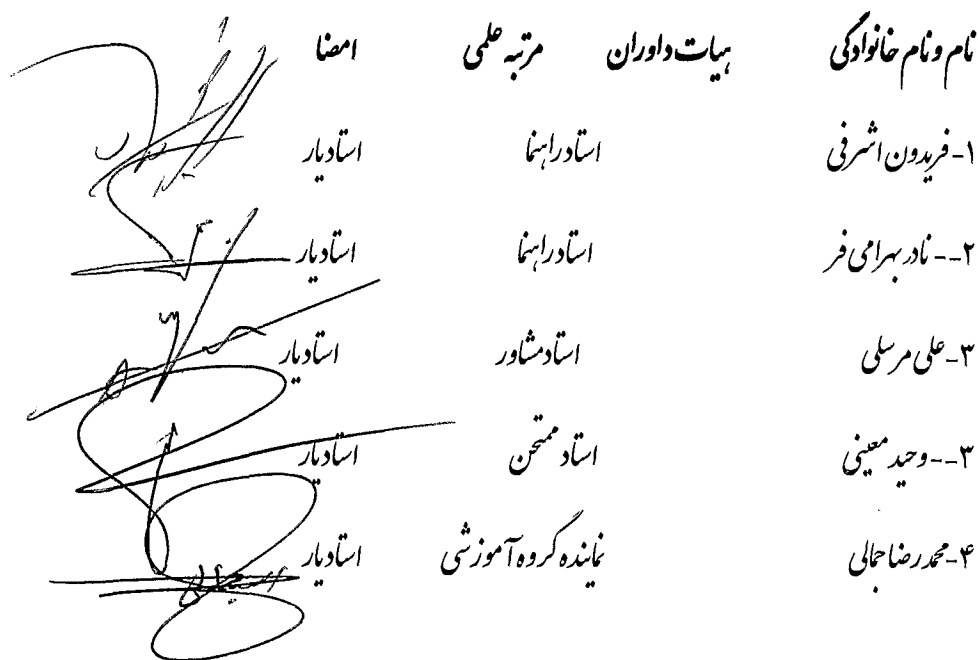 نام و نام خانوادگی هیات داوران مرتبه علمی امضا
۱-فریدون اشرفی استاد راهنما استادیار
۲--نادر بهرامی فر استاد راهنما استادیار
۳-علی مرسلی استاد مشاور استادیار
۳--وحید معینی استاد ممتحن استادیار
۴-محمدرضا جمالی نماینده گروه آموزشی استادیار